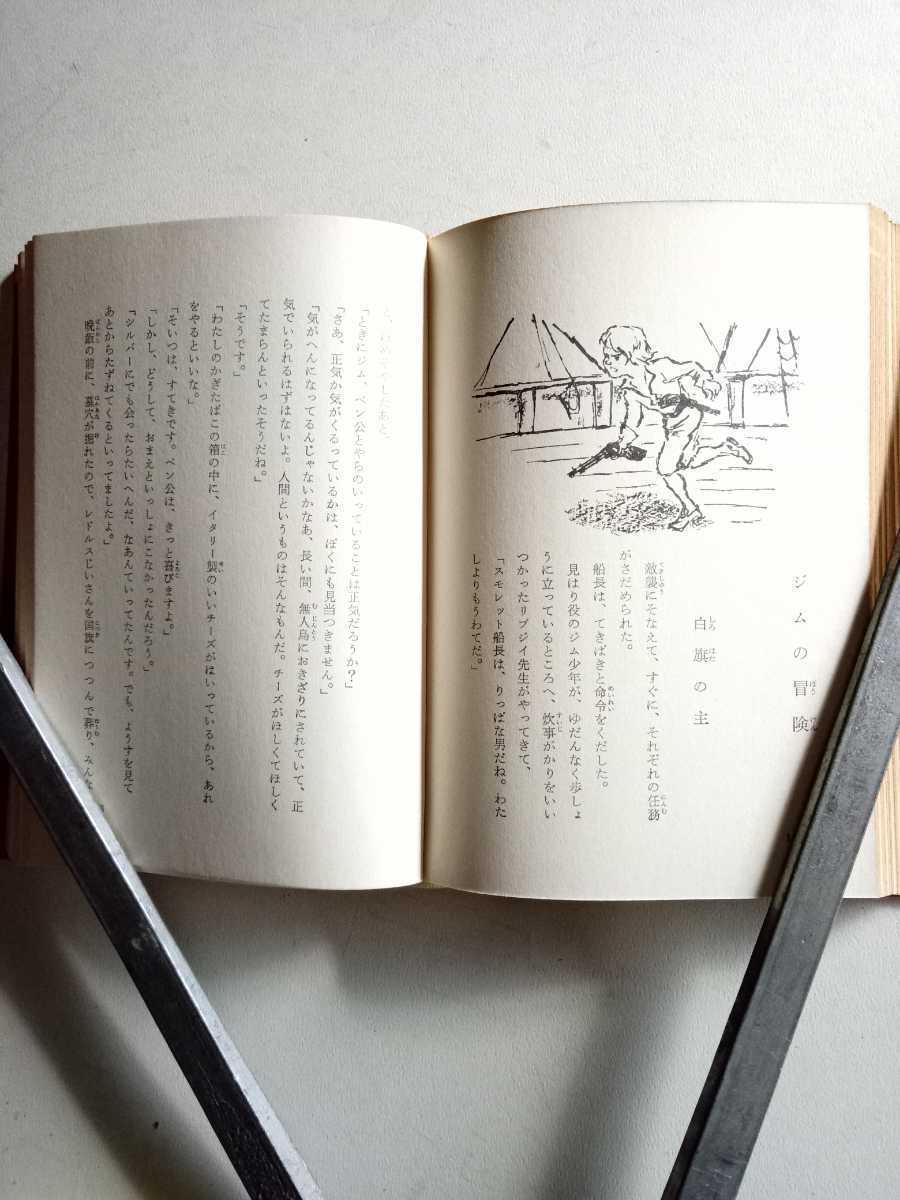 ジムの冒険
白旗の主
敵襲にそなえて、すぐに、それぞれの任務
がさだめられた。
船長は、てきぱきと命令をくだした。
見はり役のジム少年が、ゆだんなく歩しょ
うに立っているところへ、炊事がかりをいい
つかったリブジイ先生がやってきて、
「スモレット船長は、りっぱな男だね。わた
しよりもうわてだ。」
したあと、
「ときにジム、ベン公とやらのいっていることは正気だろうか?」
「さあ、正気か気がくるっているかは、ぼくにも見当つきません。」
「気がへんになってるんじゃないかなあ、長い間、無人島におきざりにされていて、正
気でいられるはずはないよ。人間というものはそんなもんだ。チーズがほしくてほしく
てたまらんといったそうだね。」
「そうです。」
「わたしのかぎたばこの箱の中に、イタリー製のいいチーズがはいっているから、あれ
をやるといいな。」
「そいつは、すてきです。ベン公は、きっと喜びますよ。」
「しかし、どうして、おまえといっしょにこなかったんだろう。」
「シルバーにでも会ったらたいへんだ、なあんていってたんです。でも、ようすを見て
あとからたずねてくるといってましたよ。」
晩飯の前に、墓穴が掘れたので、レドルスじいさんを国旗につつんで葬り、みんな